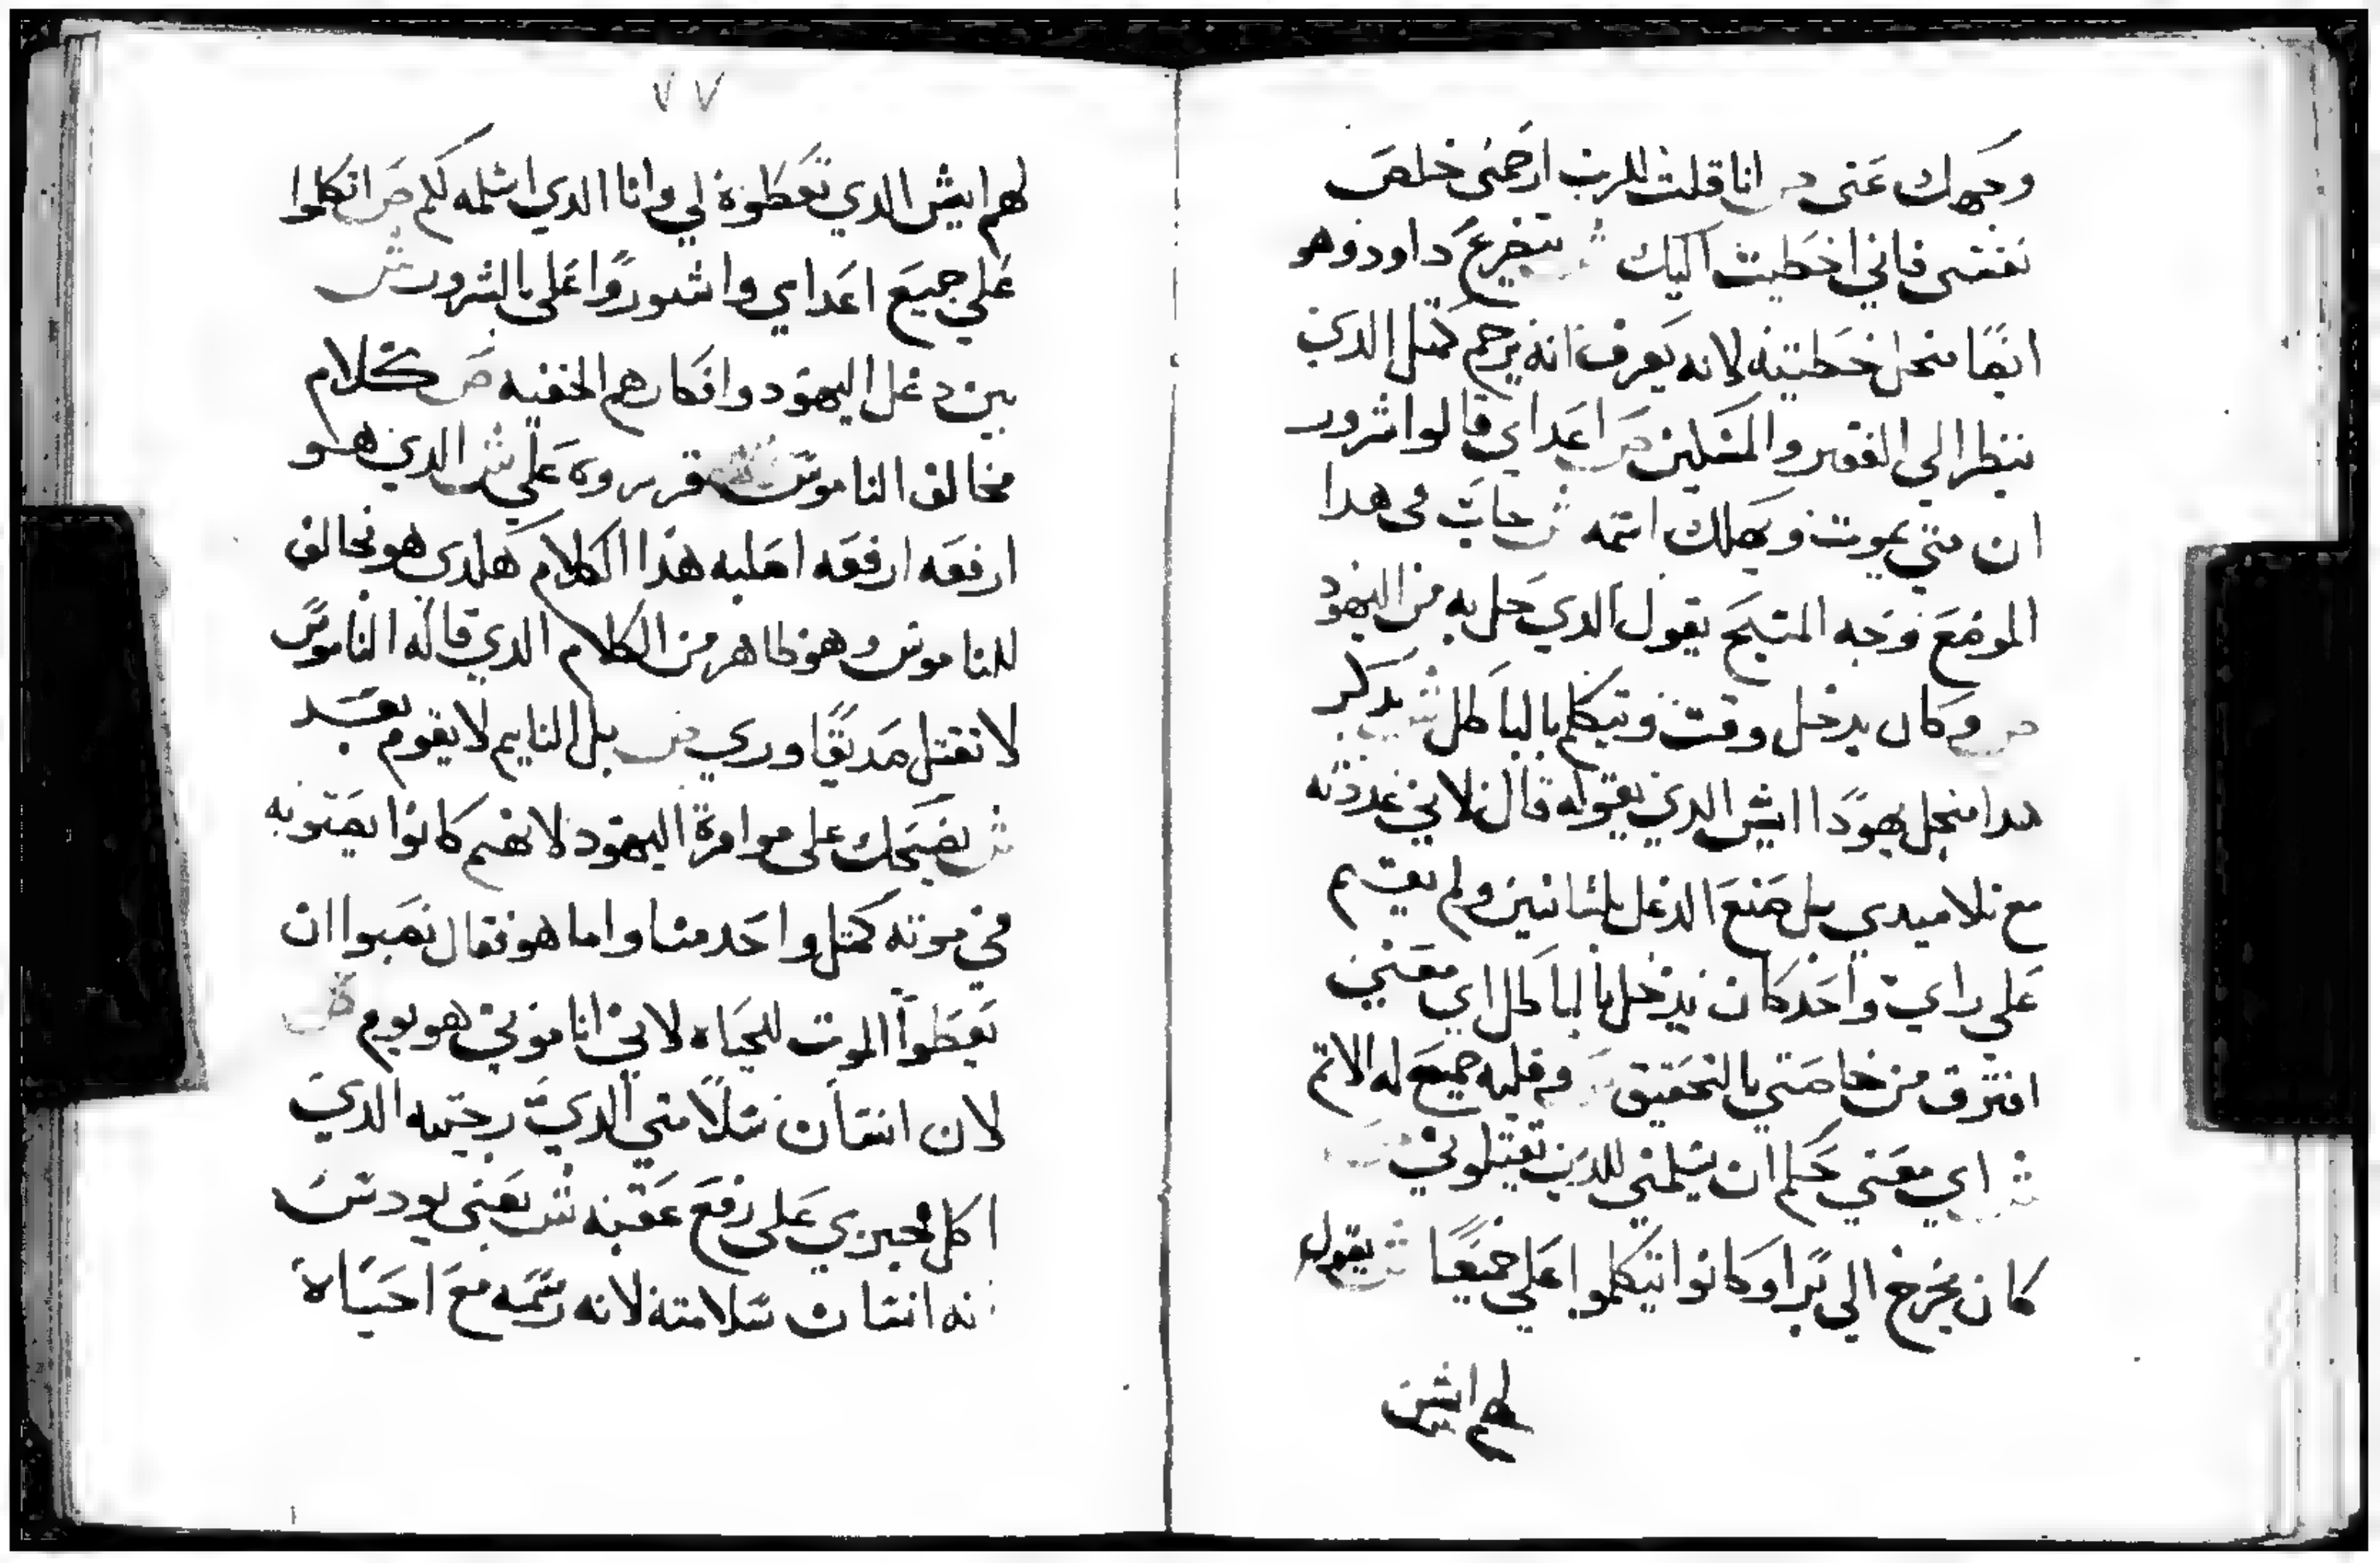 وجهك عنى ص انا قلت للرب ارحمنى خلص
نفسى فانى اخطيت اليك ش يتضرع داوود وهو
ايضا منجل خطيته لانه يعرف انه يرحم كمثل الدى
ينظر الي الفقير والمسكين ص اعداي قالوا شرور
ان متي يموت ويهلك اسمه ش جاب فى هدا
الموضع فوجه المسيح يقول الدي حل به من اليهود
ص وكان يدخل وقت ويتكلم بالباطل ش يدكر
هدا منجل يهودا ايش الدي يقوله قال لاني عددته
مع تلاميدي بل صنع الدغل بلسانين ولم يقيم
على راي واحد كان يدخل بالباطل اي معني
افترق من خاصتي بالتحقيق ص وقلبه جميع له الاتم
ش اي معني حكم ان يسلمنى للدين يقتلوني ص
كان يخرج الي برا وكانوا يتكلموا علي جميعا ش يقول
لهم ايش
٧٧
لهم ايش الدي تعطوة لي وانا الدي اسلمه لكم ص اتكلوا
علي جميع اعداي واشوروا على بالشرور ش
بين دغل اليهود وافكارهم الخفيه ص كلام
مخالف الناموس قرروه علي ش الدي هو
ارفعه ارفعه اصلبه هدا الكلام هلدي هو مخالف
للناموس وهو ظاهر من الكلام الدي قاله الناموس
لا تقتل صديقا وري ص بل النايم لا يقوم بعد
ش يضحك على موامرة اليهود لانهم كانوا يضنو به
في موته كمثل واحد منا واما هو فقال نصبوا ان
تعطوا الموت للحياه لاني انا موتي هو يوم ص
لان انسان سلامتي الدي رجيته الدي
اكل خبزي على رفع عقبه ش يعنى يودس
انه انسان سلامته لانه رسمه مع احباة